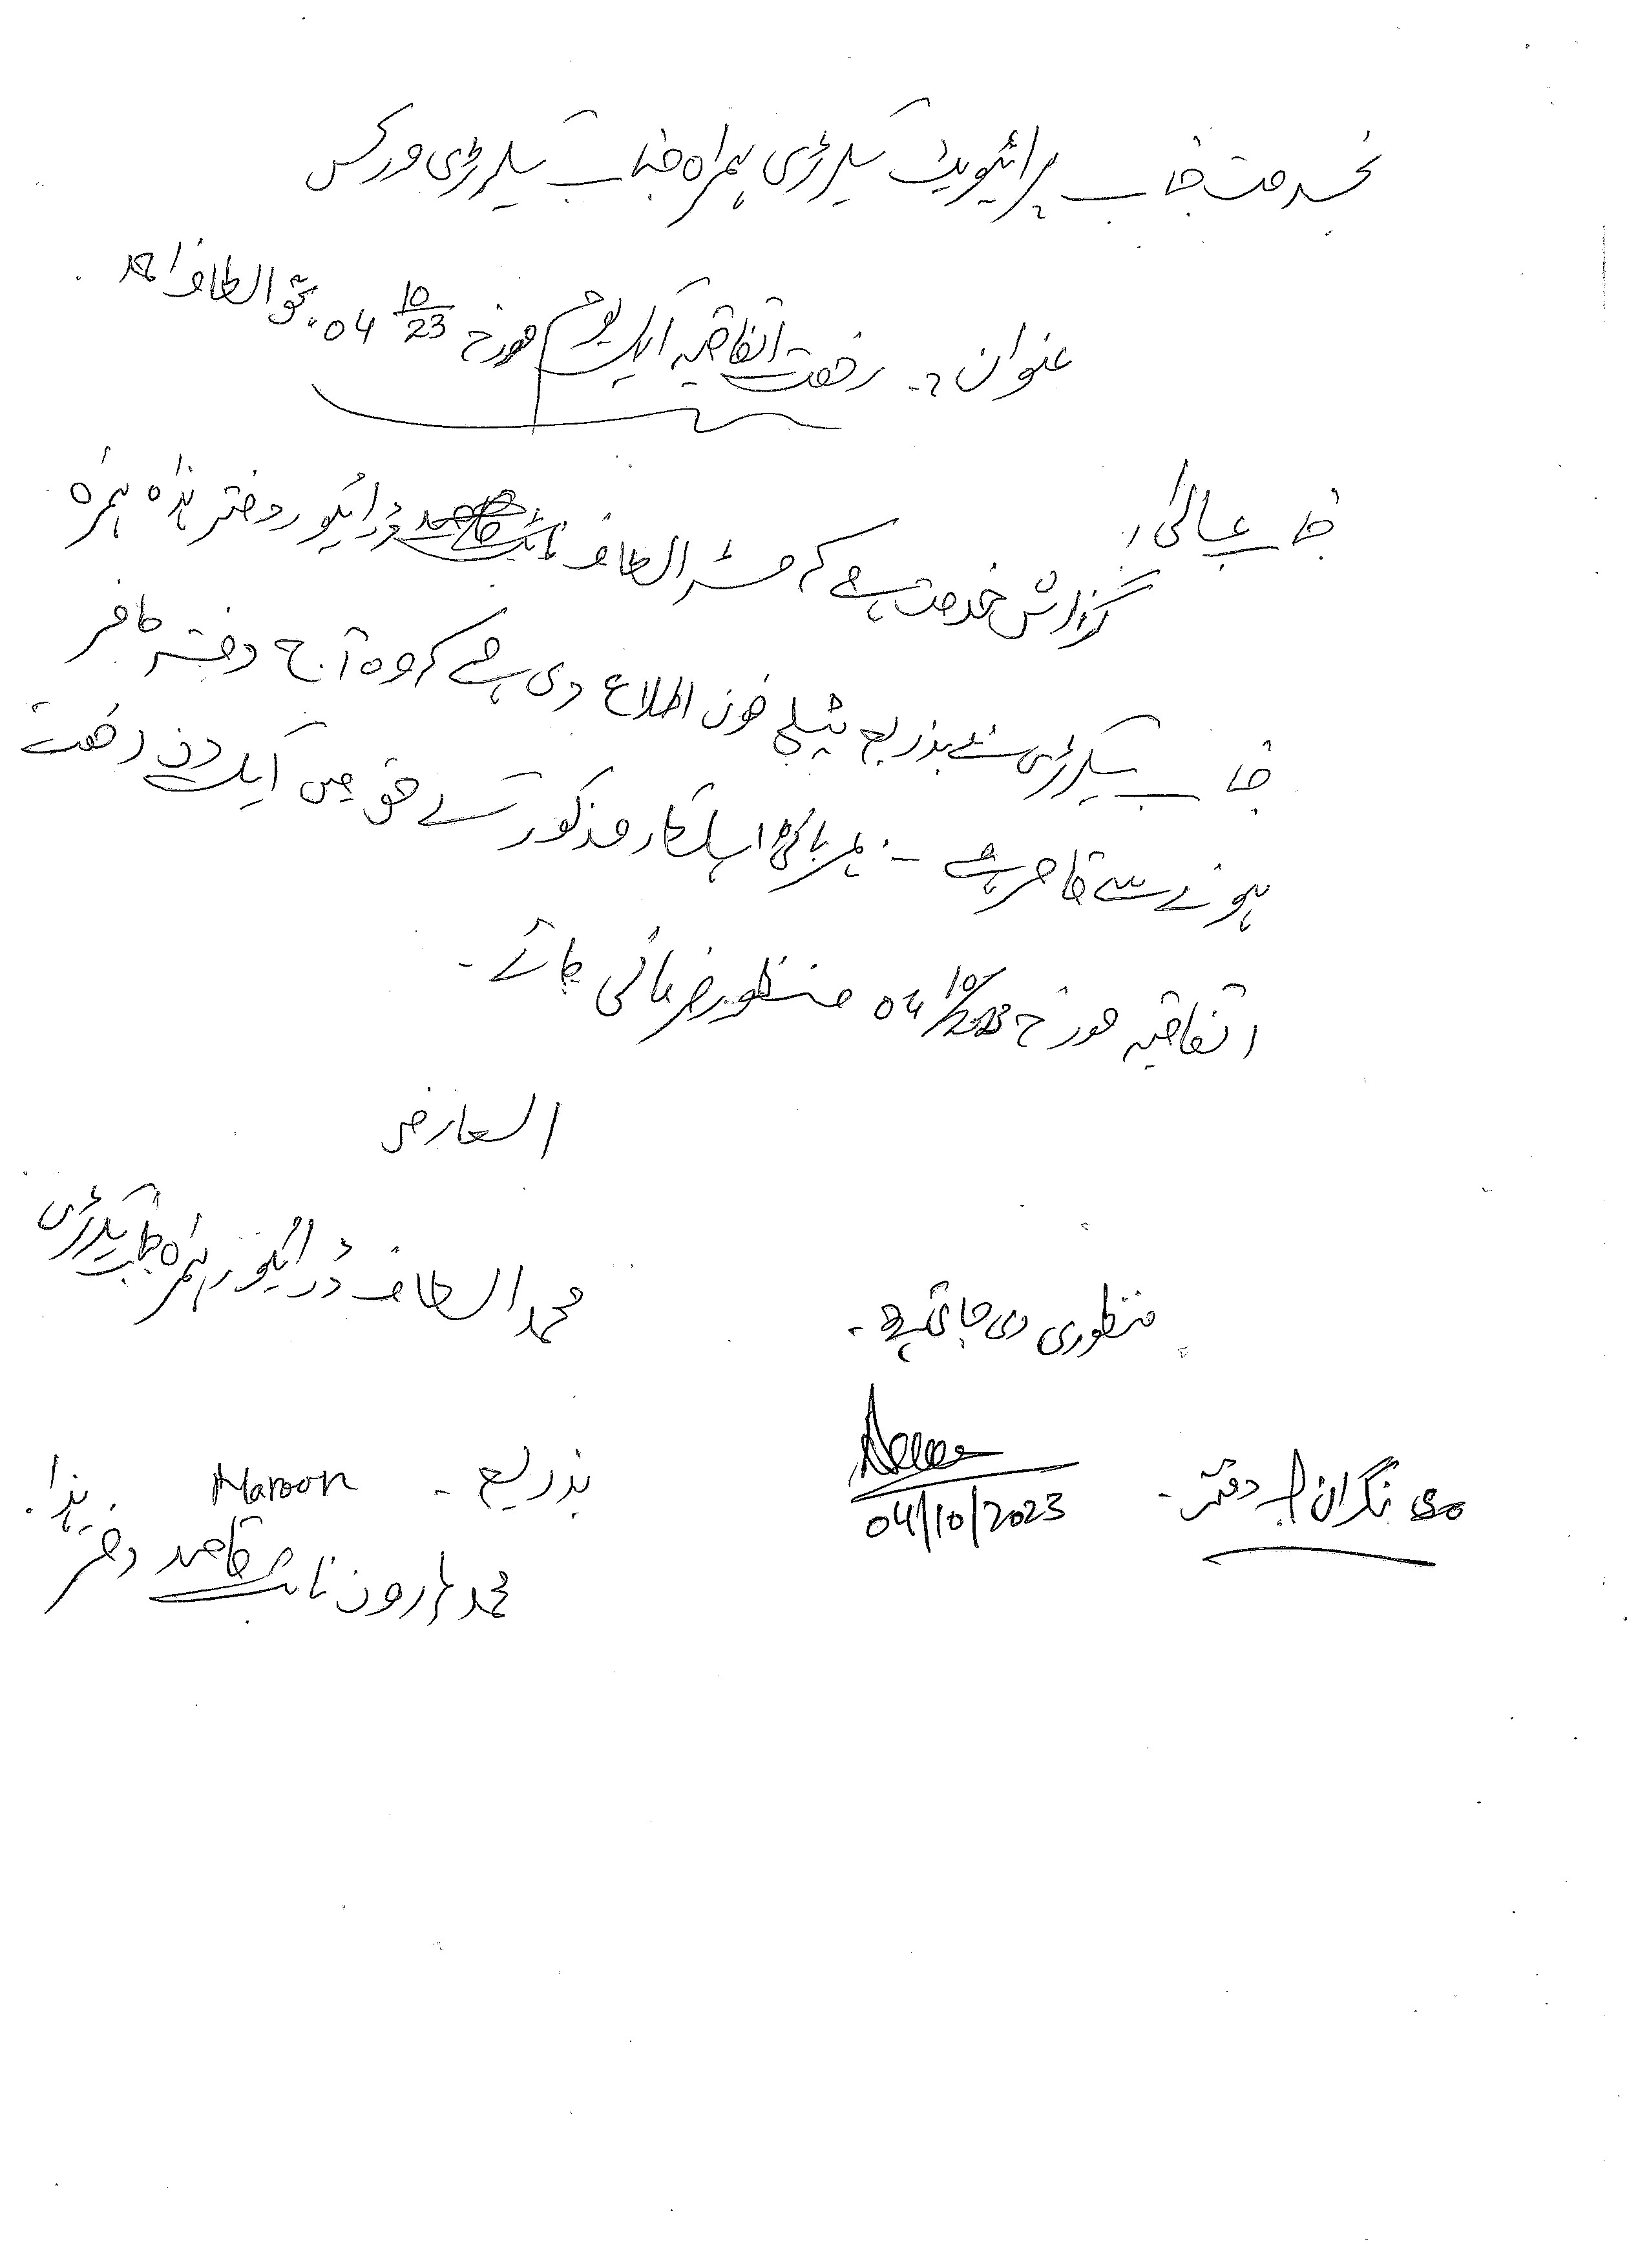 بخدمت جناب پرائیویٹ سیکرٹری ہمراہ جناب سیکرٹری ورکس
عنوان :۔ رخصت اتفاقیہ ایک یوم مورخہ 04 10/23 بحق الطاف احمد
جناب عالی!
گزارش خدمت ہے کہ مسٹر الطاف ڈرائیور دفتر ہذاہ ہمراہ
جناب سیکرٹری نے بذریعہ ٹیلی فون اطلاع دی ہے کہ وہ آج دفتر حاضر
ہونے سے قاصر ہے ۔ بمہربانی اہلکار مذکور کے حق میں ایک دن رخصت
اتفاقیہ مورخہ 04/10/2023 منظور فرمائی جائے ۔
العارض
محمد الطاف ڈرائیور ہمراہ جناب سیکرٹری
منظوری دی جاتی ہے ۔
بذریعہ ۔ Haroon
محمد ہارون نائب قاصد دفتر ہذا
04/10/2023
نگران دفتر ۔